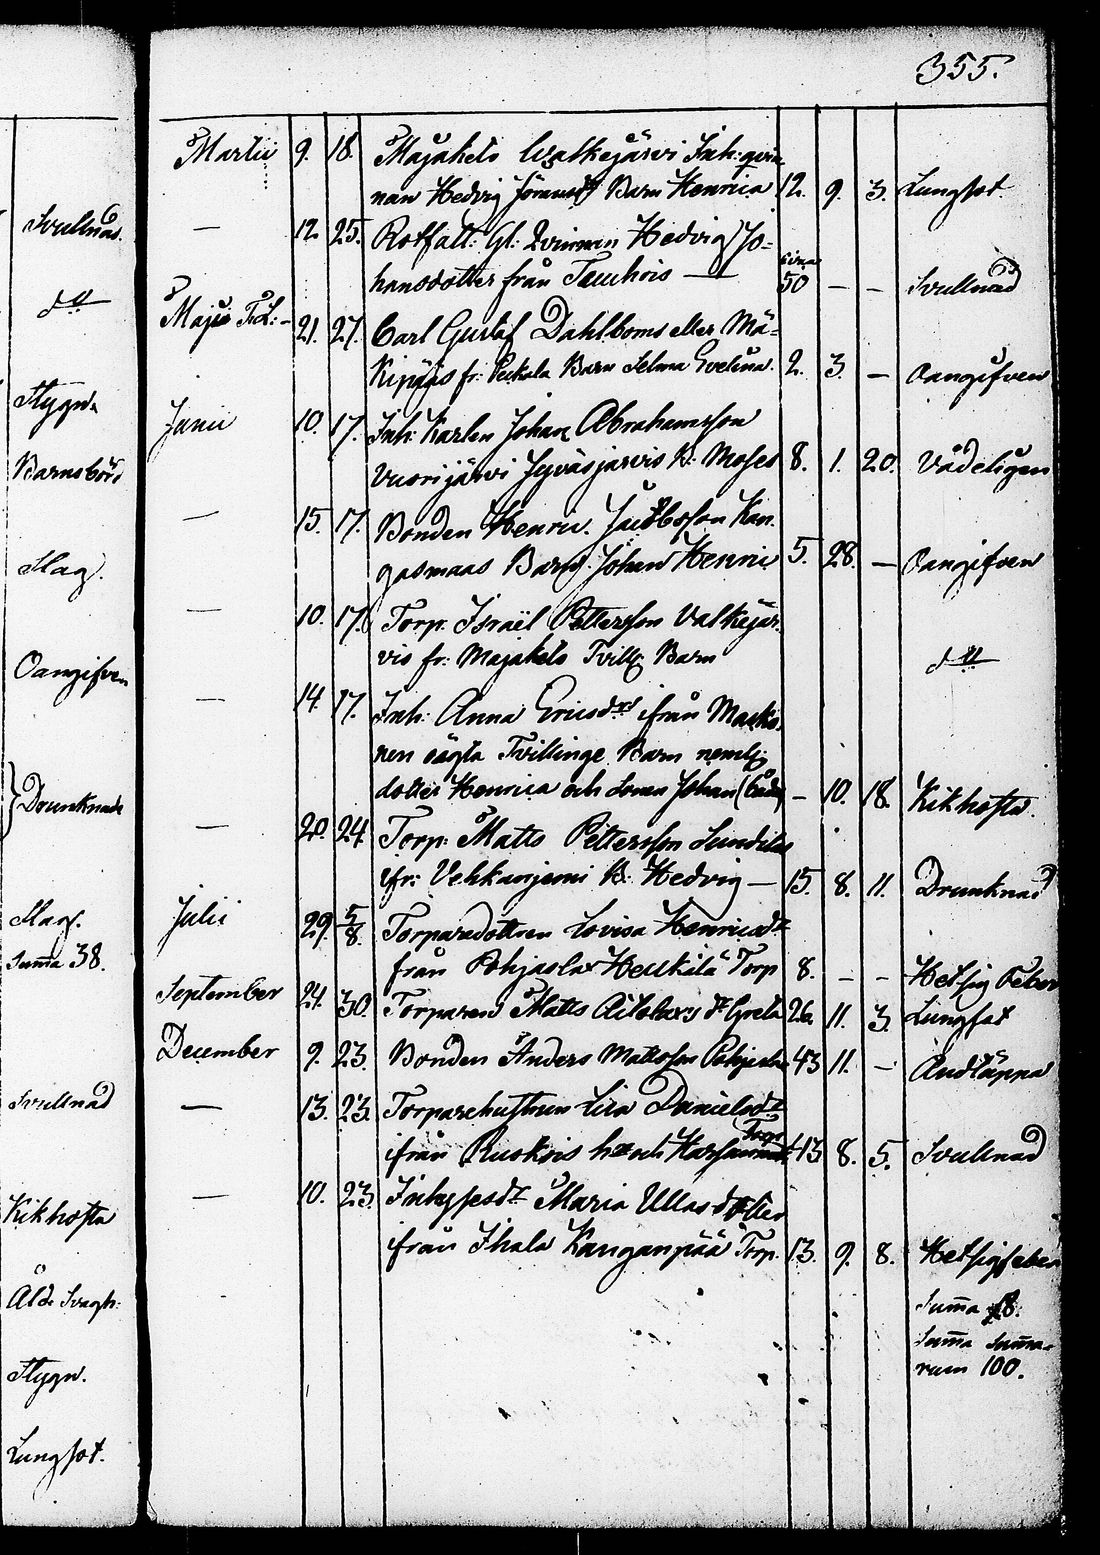 355.
Svullnad.
d:o
Stygn.
Barnsbörd
Slag.
Oangifven
Drunknade
Slag.
Summa 38.
Svullnad
Kikhosta
Åld: Svagh:
Stygn.
Lungsot.
Martii 9. 18. Majakels Walkejärvi Inh: qvin-
nan Hedvig Barn Henrica 12. 9. 3. Lungsot.
— 12. 25. Rotfatt: Gl: Qvinnan Hedvig Jo-
hansdotter från circa 50 — — Svullnad
Maji 21. 27. Carl Gustaf Dahlboms eller Mä-
kipääs fr: Peckala Barn Selma Evelina. 2. 3. — Oangifven
Junii 10. 17. Inh: Karlen Johan Abrahamsson
Vuorijärvi B: Moses 8. 1. 20. Vådeligen
— 15. 17. Bonden Henric Jacobsson Kan-
gasmaas Barn Johan Henric 5. 28. — Oangifven
— 10. 17. Torp: Israël Pettersson Valkejär-
vis fr: Majakels Tvill: Barn d:o
— 14. 17. Inh: Anna Ericsd:r ifrån
nen oägta Tvillinge Barn neml:
dotter Henrica och Sonen Johan (både) — 10. 18. Kikhosta.
— 20. 24. Torp: Matts Pettersson
ifr: Vehkanjemi B: Hedvig — 15. 8. 11. Drunknad
Julii 29. 5/8. Torparedottren Lovisa Henricsd:r
från Pohjasla Heickilä Torp 8. — — Hetsig Feber
September 24. 30. Torparens Matts d:r Greta 26. 11. 3. Lungsot
December 9. 23. Bonden Anders Mattsson 43 11. — Andtäppa
— 13. 23. Torparehustrun Lisa Danielsd:r
ifrån Ruskois Torp 43 8. 5. Svullnad
— 10. 23. Maria Ullasdotter
ifrån Ihala Kanganpää Torp. 13. 9. 8. Hetsigfeber
Summa 18.
Summa Summa-
rum 100.